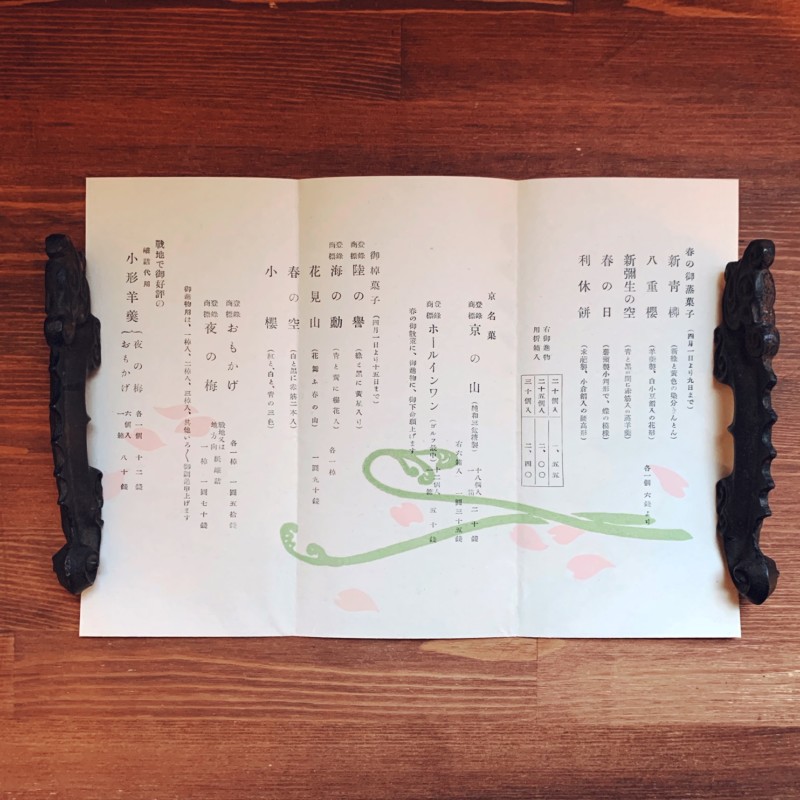 春の御蒸菓子 (四月一日より九日まで)
新青柳 (薄綠と黄色の染分きんとん)
八重櫻 (羊羹製、白小豆餡入の花形)
新彌生の空 (青と黒の間に赤餡入の蒸羊羹)
春の日 (薯蕷製小判形で、蝶の模樣)
利休餠
各一個 六錢より
右御進物用折詰入
二十個入 一、五五
二十五個入 二、〇〇
三十個入 二、四〇
京名菓
登錄商標 京の山
十八個入 二十錢
右六個入 一圓三十五錢
登錄商標 ホールインワン (ゴルフ最中) 十二個入 五十錢
春の御散策に、御進物に、御下命願上げます
御棹菓子 (四月一日より十五日まで)
登錄商標 陸の譽 (綠と黒に黄星入り)
登錄商標 海の勳 (青と黄に櫻花入)
花見山 (花舞ふ春の山)
春の空 (白と黒に赤筋二本入)
小櫻 (紅と、白と、青の三色)
各一棹 一圓九十錢
登錄商標 おもかげ
登錄商標 夜の梅
各一棹 一圓五拾錢
戰地又は地方向 一棹 一圓七十錢
御進物用は、一棹入、二棹入、三棹入、其他いろ〱御調進申上げます
戰地で御好評の
補給代用
小形羊羹 夜の梅 おもかげ
各一個 十二錢
六個入 八十錢